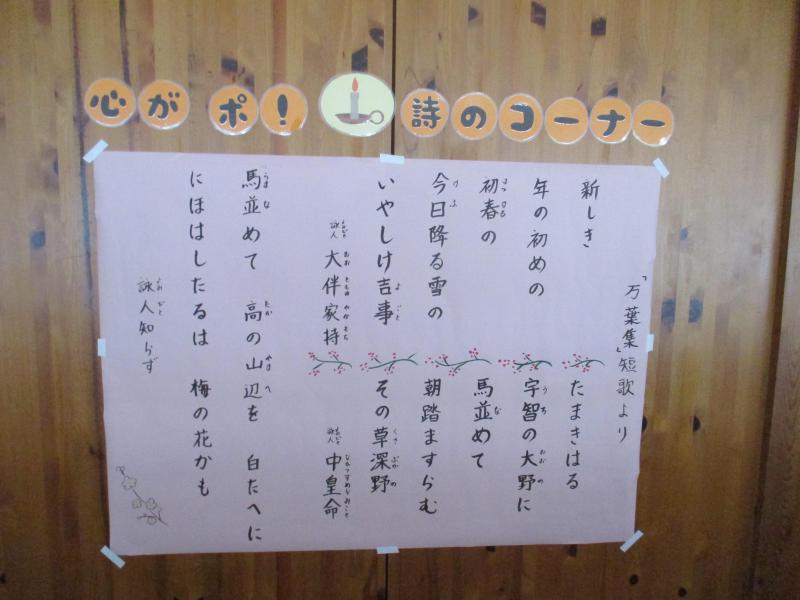 心がポ！ 詩のコーナー
「万葉集」短歌より
新しき
年の初めの
初春の
今日降る雪の
いやしけ吉事
詠人 大伴家持
たまきはる
宇智の大野に
馬並めて
朝踏ますらむ
その草深野
詠人 中皇命
馬並めて 高の山辺を 白たへに
にほはしたるは 梅の花かも
詠人知らず